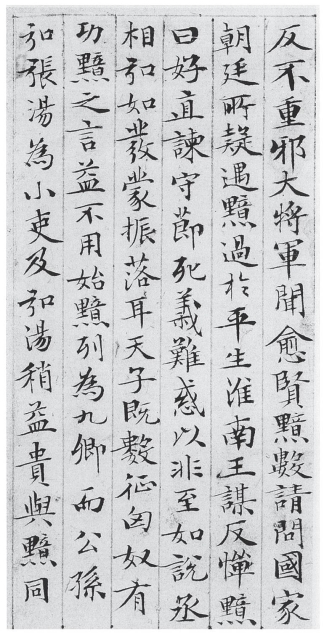 反不重邪大將軍聞愈賢黯數請問國家
朝廷所疑遇黯過於平生淮南王謀反憚黯
曰好直諫守節死義難惑以非至如說丞
相弘如發蒙振落耳天子既數征匈奴有
功黯之言益不用始黯列為九卿而公孫
弘張湯為小吏及弘湯稍益貴與黯同